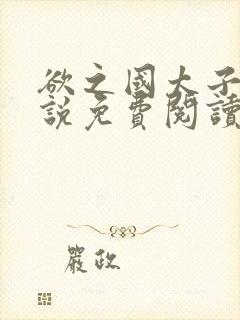 欲之國大子
說免費閱讀
嚴政